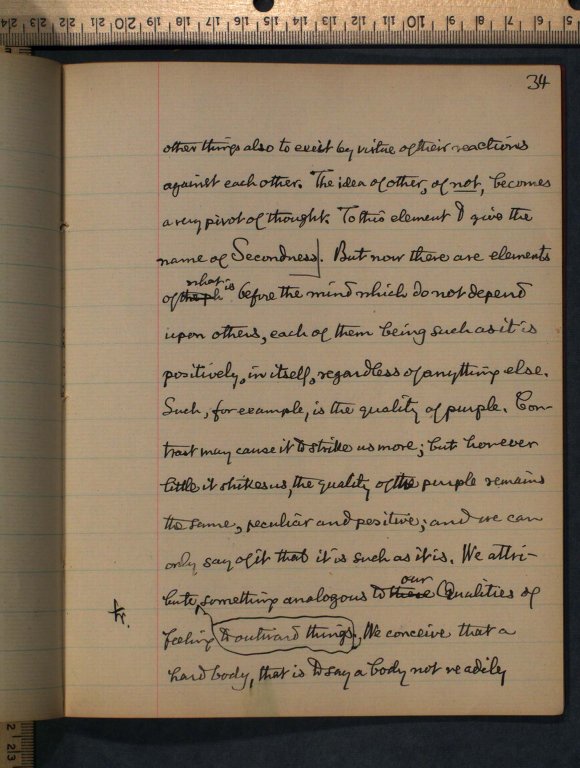 34
other things also to exist by virtue of their reactions
against each other. The idea of other, of not, becomes
a very pivot of thought. To this element I give the
name of Secondness. But now there are elements
what is
of the ph before the mind which do not depend
upon others, each of them being such as it is
positively, in itself, regardless of anything else.
Such, for example, is the quality of purple. Con-
trast may cause it to strike us more; but however
little it strikes us, the quality of the purple remains
the same, peculiar and positive; and we can
only say of it that it is such as it is. We attri-
our
bute something analogous to these Qualities of
tr.
feeling to outward things. We conceive that a
hard body, that is to say a body not readily